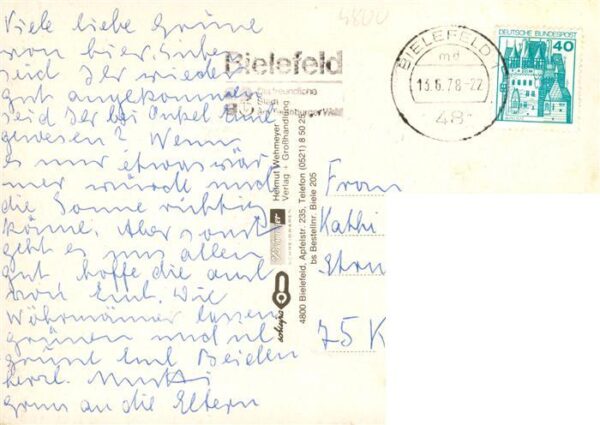 Viele liebe Grüße
von hier. Sicher
seid Ihr wieder
gut angekommen
seid Ihr bei Onkel
gewesen? Wenn
es nur etwas wär
mer würde und
die Sonne richtig
käme. Aber sonst
geht es uns allen
gut hoffe die auch
von Euch. Die
lassen
grüssen und ich
grüsst Euch Beiden
herzl. Mutti
Gruss an die Eltern
4800
Bielefeld
Die freundliche
Stadt
am Teutoburger Wald
BIELEFELD
md
13.6.78-22
48
DEUTSCHE BUNDESPOST
40
Helmut Wehmeyer
Verlag + Großhandlung
4800 Bielefeld, Apfelstr. 235, Telefon (0521) 8 50 29
bs Bestellnr. Biele 205
schöning
Frau
Kathi
75 K